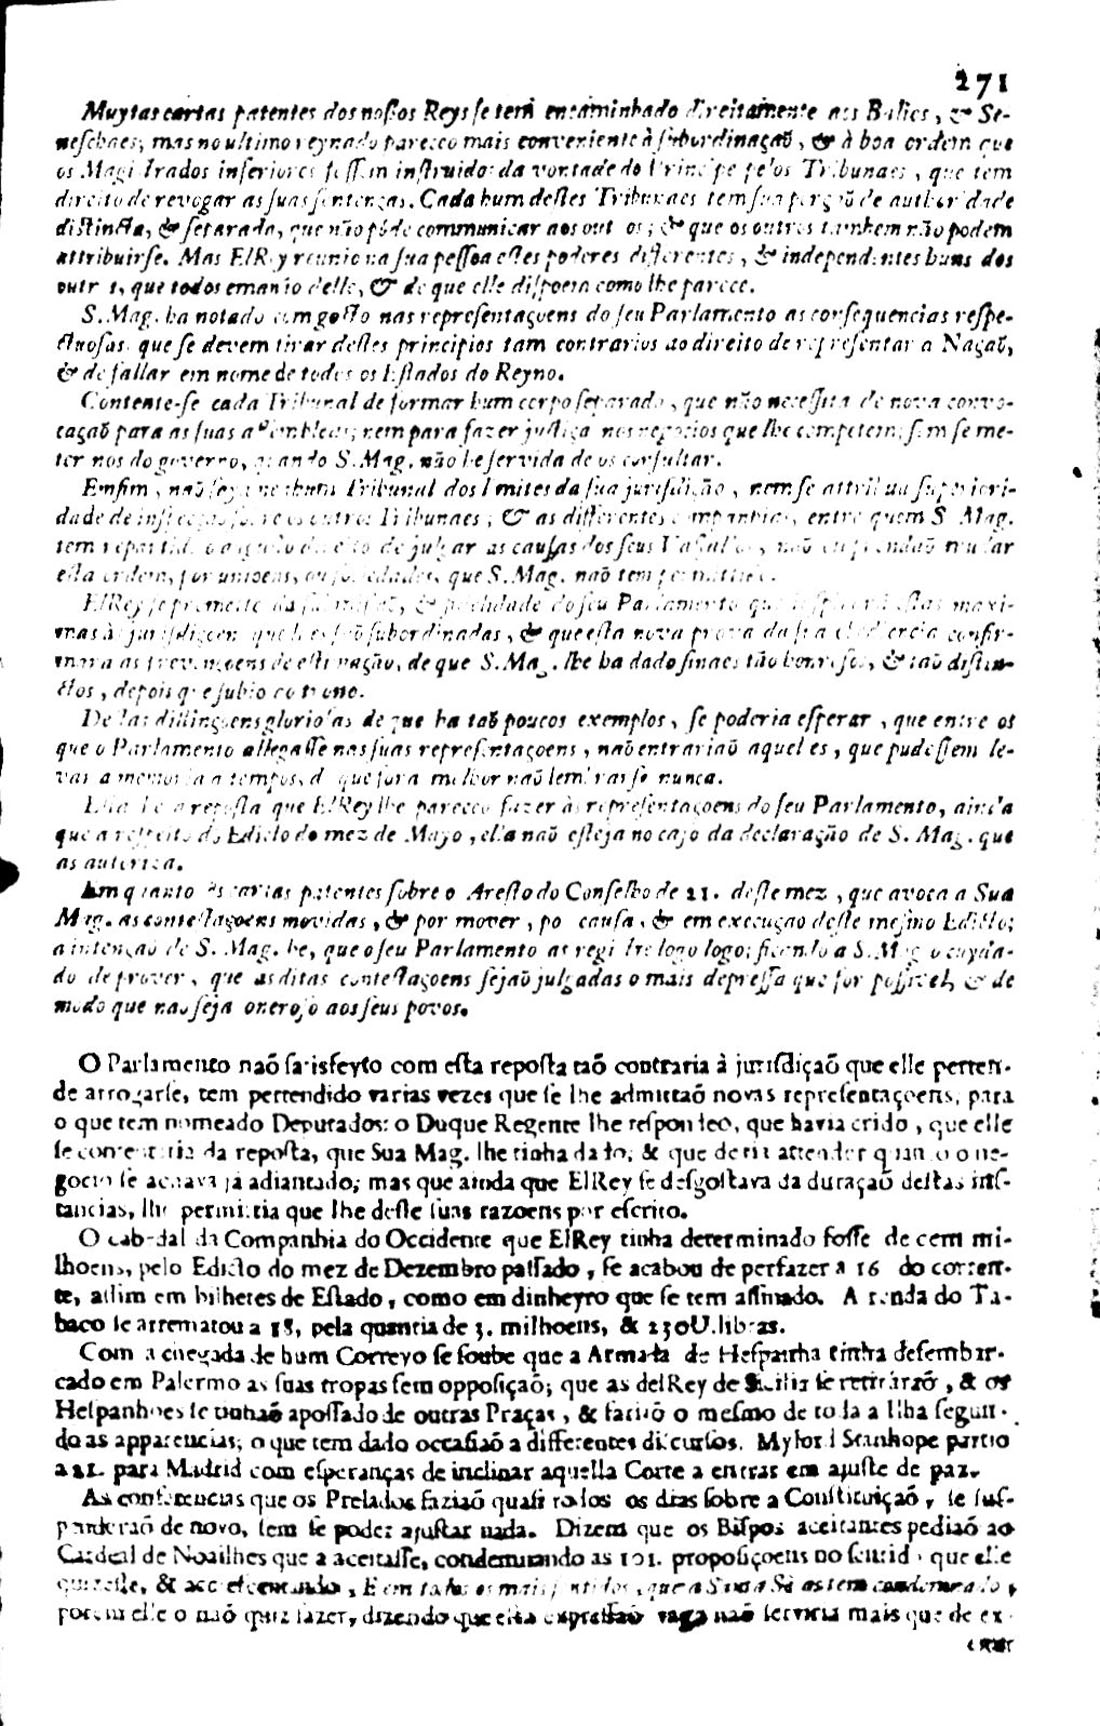 271
Muytas cartas patentes dos nossos Reys se tem encaminhado direitamente aos Balios, & Se-
neschaes; mas no ultimo reynado pareceo mais conveniente à subordinaçaõ, & à boa ordem que
os Magistrados inferiores fossem instruidos da vontade do Principe pelos Tribunaes, que tem
direito de revogar as suas sentenças. Cada hum destes Tribunaes tem sua porçaõ de authoridade
distincta, & separada, que não póde communicar aos outros; & que os outros tambem não podem
attribuirse. Mas ElRey reunio na sua pessoa estes poderes differentes, & independentes huns dos
outros, que todos emanão delle, & de que elle dispoem como lhe parece.
S. Mag. ha notado com gosto nas representaçoens do seu Parlamento as consequencias respe-
ctuosas, que se devem tirar destes principios tam contrarios ao direito de representar a Naçaõ,
& de fallar em nome de todos os Estados do Reyno.
Contente-se cada Tribunal de formar hum corpo separado, que não necessita de nova convo-
caçaõ para as suas assembleas; nem para fazer justiça nos negocios que lhe competem; sem se me-
ter nos do governo, quando S. Mag. não he servida de os consultar.
Emfim, naõ seya nenhum Tribunal dos limites da sua jurisdição, nem se attribua superiori-
dade de inspecçaõ sobre os outros Tribunaes; & as differentes companhias, entre quem S. Mag.
tem repartido o direito de julgar as causas dos seus Vassallos, naõ emprendaõ mudar
esta ordem, por unioens, ou sociedades, que S. Mag. naõ tem permittido.
ElRey se promette da submissaõ, & fidelidade do seu Parlamento que inspirará estas maxi-
mas às jurisdiçoens que lhe estaõ subordinadas, & que esta nova prova da sua obediencia confir-
mara as prevençoens de estimação, de que S. Mag. lhe ha dado sinaes tão honrosos, & taõ distin-
ctos, depois que subio ao trono.
Destas distinçoens gloriosas de que ha taõ poucos exemplos, se poderia esperar, que entre os
que o Parlamento allegasse nas suas representaçoens, naõ entrariaõ aquelles, que pudessem le-
var a memoria a tempos, de que fora melhor naõ lembrarse nunca.
Esta he a reposta que ElRey lhe pareceo fazer às representaçoens do seu Parlamento, ainda
que a respeito do Edicto do mez de Mayo, ella naõ esteja no caso da declaração de S. Mag. que
as autoriza.
Em quanto às cartas patentes sobre o Aresto do Conselho de 21. deste mez, que avoca a Sua
Mag. as contestaçoens movidas, & por mover, por causa, & em execuçaõ deste mesmo Edicto;
a intençaõ de S. Mag. he, que o seu Parlamento as registre logo logo; ficando a S. Mag. o cuyda-
do de prover, que as ditas contestaçoens sejaõ julgadas o mais depressa que for possivel, & de
modo que naõ seja oneroso aos seus povos.
O Parlamento naõ satisfeyto com esta reposta taõ contraria à jurisdiçaõ que elle perten-
de arrogarse, tem pertendido varias vezes que se lhe admittaõ novas representaçoens, para
o que tem nomeado Deputados: o Duque Regente lhe respondeo, que havia crido, que elle
se contentaria da reposta, que Sua Mag. lhe tinha dado; & que devia attender quando o ne-
gocio se achava já adiantado; mas que ainda que ElRey se desgostava da duraçaõ destas ins-
tancias, lhe permittia que lhe desse suas razoens por escrito.
O cabedal da Companhia do Occidente que ElRey tinha determinado fosse de cem mi-
lhoens, pelo Edicto do mez de Dezembro passado, se acabou de perfazer a 16 do corren-
te, assim em bilhetes de Estado, como em dinheyro que se tem assinado. A renda do Ta-
baco se arrematou a 18, pela quantia de 3. milhoens, & 230U. libras.
Com a chegada de hum Correyo se soube que a Armada de Hespanha tinha desembar-
cado em Palermo as suas tropas sem opposiçaõ; que as delRey de Sicilia se retiráraõ, & os
Hespanhoes se tinhaõ apossado de outras Praças, & fariaõ o mesmo de toda a Ilha segun-
do as apparencias; o que tem dado occasiaõ a differentes discursos. Mylord Stanhope partio
a 21. para Madrid com esperanças de inclinar aquella Corte a entrar em ajuste de paz.
As conferencias que os Prelados faziaõ quasi todos os dias sobre a Constituiçaõ, se sus-
penderaõ de novo, sem se poder ajustar nada. Dizem que os Bispos aceitantes pediaõ ao
Cardeal de Noailhes que a aceitasse, condemnando as 101. proposiçoens no sentido que elle
quizesse, & accrecentando, E em todos os mais sentidos, que a Santa Sé as tem condemnado,
porem elle o naõ quiz fazer, dizendo que esta expressaõ vaga naõ serviria mais que de ex-